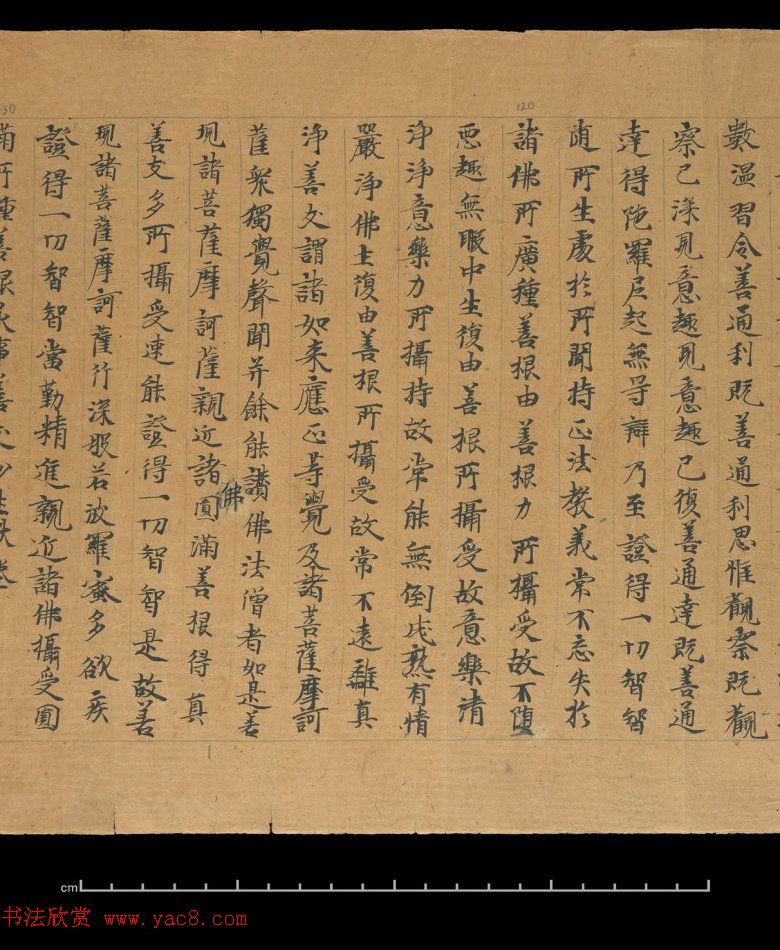 數溫習令善通利既善通利思惟觀察既觀
察已深見意趣見意趣已復善通達既善通
達得陀羅尼起無㝵辯乃至證得一切智智
随所生處於所聞持正法教義常不忘失於
諸佛所廣種善根由善根力所攝受故不墮
惡趣無暇中生復由善根所攝受故意樂清
淨淨意樂力所攝持故常能無倒成熟有情
嚴淨佛土復由善根所攝受故常不遠離真
淨善友謂諸如来應正等覺及諸菩薩摩訶
薩衆獨覺聲聞并餘能讚佛法僧者如是善
現諸菩薩摩訶薩親近諸佛圓滿善根得真
善友多所攝受速能證得一切智智是故善
現諸菩薩摩訶薩行深般若波羅蜜多欲疾
證得一切智智當勤精進親近諸佛攝受圓
滿所種善根承事善友
120
30
cm
书法欣赏 www.yac8.com